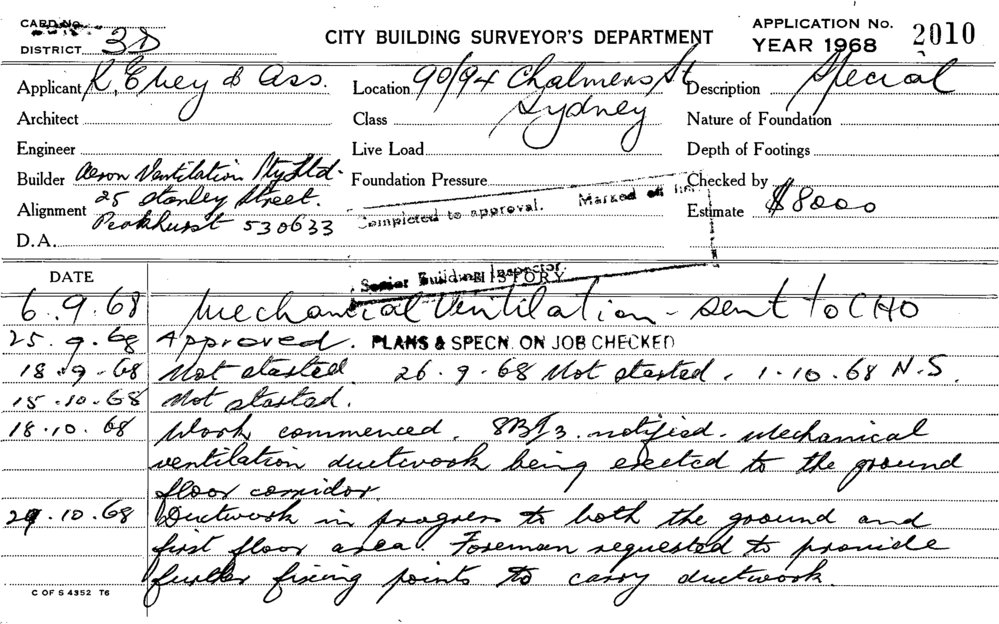 CARD No.
DISTRICT 3D
CITY BUILDING SURVEYOR'S DEPARTMENT
APPLICATION No. 2010
YEAR 1968
Applicant K. & Ass.
Location 90/94 Chalmers St
Sydney
Description Special
Architect
Class
Nature of Foundation
Engineer
Live Load
Depth of Footings
Builder Aeron Ventilation Pty Ltd.
Foundation Pressure
Checked by
Alignment 25 Stanley Street.
Peakhurst 530633
Completed to approval. Marked off
Estimate $8000
D.A.
Senior Building Inspector
DATE
HISTORY
6.9.68 Mechanical Ventilation - sent to CHO
25.9.68 Approved. PLANS & SPECN. ON JOB CHECKED
18.9.68 Not started. 26.9.68 Not started. 1.10.68 N.S.
15.10.68 Not started.
18.10.68 Work commenced. notified. Mechanical
ventilation ductwork being erected to the ground
floor corridor.
29.10.68 Ductwork in progress to both the ground and
first floor area. Foreman requested to provide
further fixing points to carry ductwork.
C OF S 4352 T6